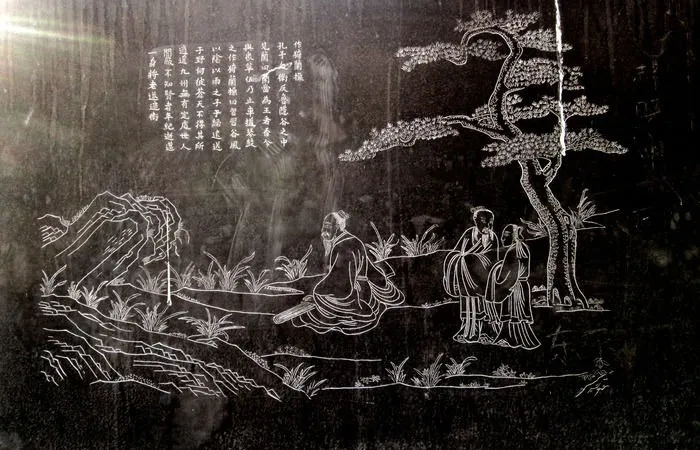 作猗蘭操
孔子自衛反魯隱谷之中
見蘭曰蘭當為王者香今
與衆草伍乃止車援琴鼓
之作猗蘭操曰習習谷風
以陰以雨之子于歸遠送
于野何彼蒼天不得其所
逍遙九州無有定處世人
闇蔽不知賢者年紀逝邁
一身將老送適衛